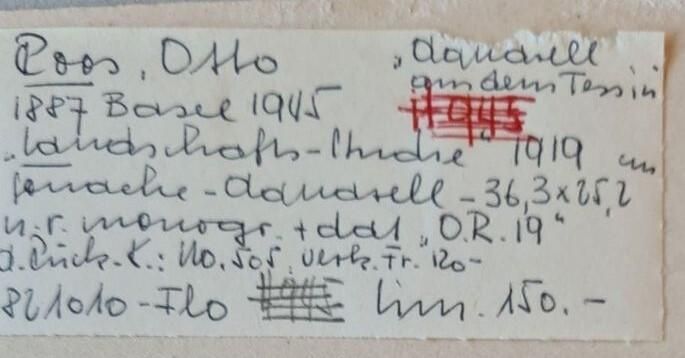 Roos, Otto „Aquarell
aus dem Tessin
1887 Basel 1945
„Landschafts-Studie" 1919 cm
Gouache-Aquarell - 36,3x25,2
u.r. monogr. + dat „O.R. 19"
a. Rück. K.: No. 505. verk. Fr. 120-
821010-Flo Lim. 150.-